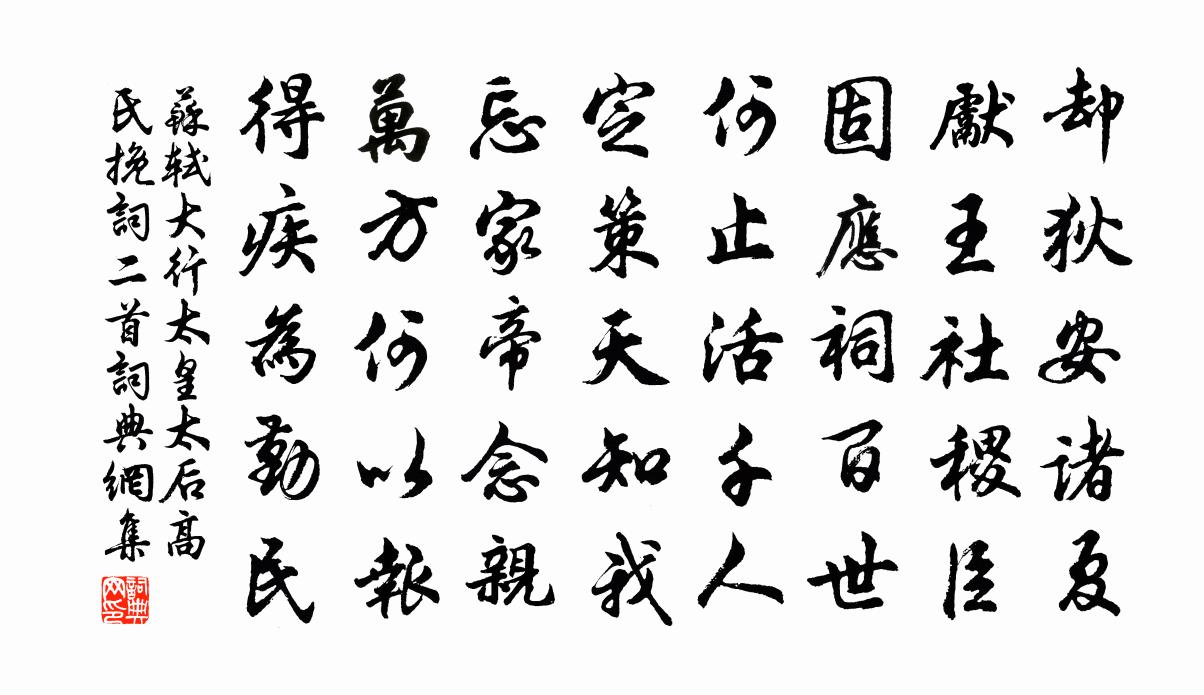 却狄安諸夏
獻王社稷臣
固應祠百世
何止活千人
定策天知我
忘家帝念親
萬方何以報
得疾為勤民
蘇軾大行太皇太后高
氏挽詞二首詞典網集
詞典網印